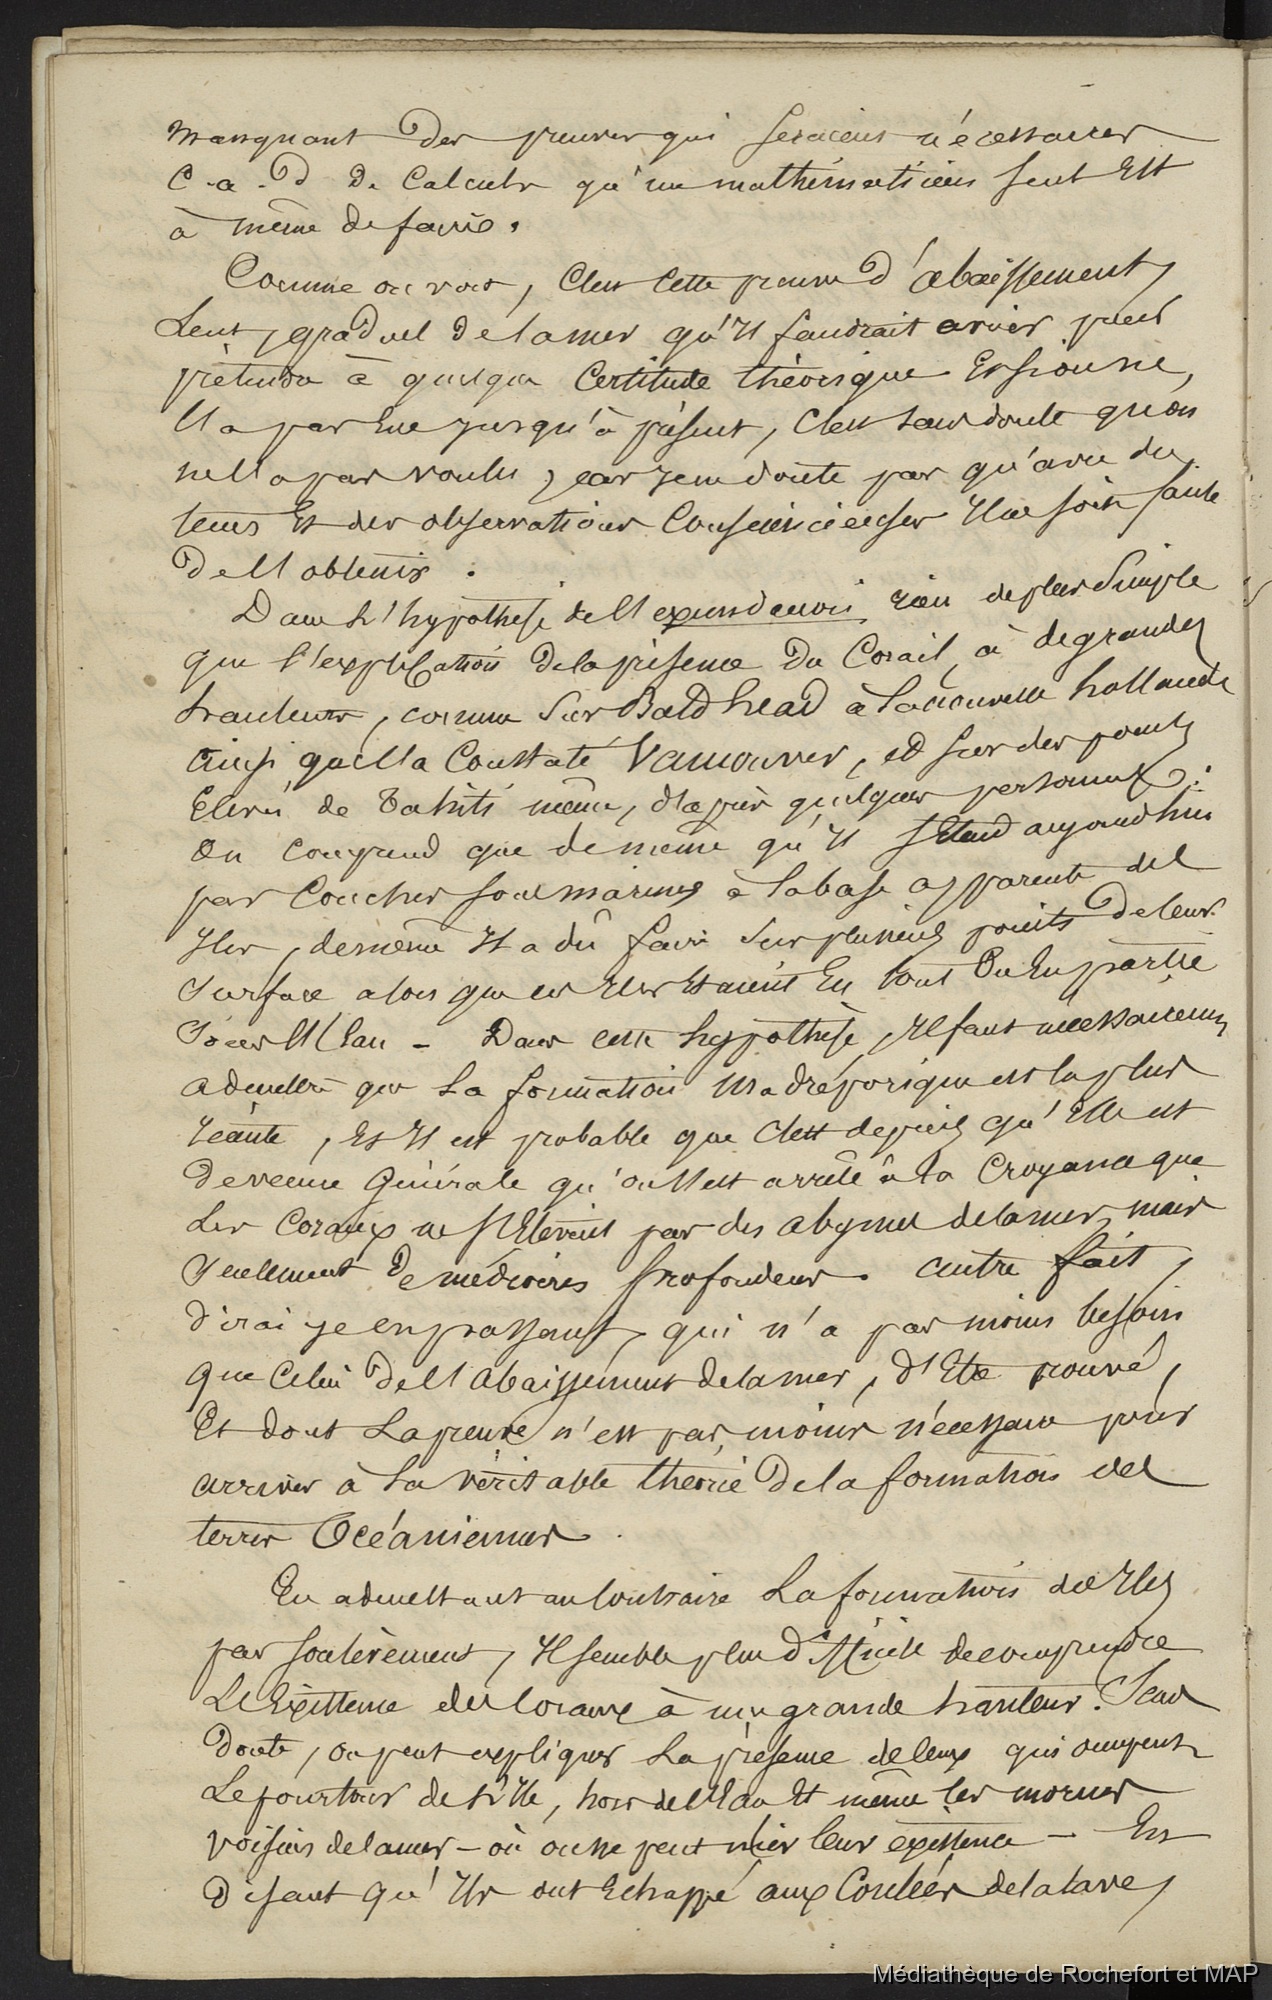 manquant des preuves qui seraient nécessaires
C.-a-D De Calculs qu'un mathématicien seul Est
à même de faire.
Comme on voit, C'est Cette preuve d'abaissement,
Lent, graduel de la mer qu'il faudrait avoir pour
prétendre à quelque Certitude théorique Et si on ne,
l'a pas Eue jusqu'à présent, C'est sans doute qu'on
ne l'a pas voulu, car je ne doute pas qu'avec du
tems Et des observations Consciencieuses Il ne soit facile
De l'obtenir.
Dans L'hypothèse de l'exondaison rien de plus Simple
que l'explication De la présence Du Corail, à de grandes
hauteurs, comme Sur Bald head à la nouvelle hollande
ainsi que l'a Constaté Vancouver, et sur des points
Elevés de Tahiti même, d'après quelques personnes :
On comprend que de même qu'il s'Etend aujourd'hui
par Couches sous marines à la base apparente des
Iles, de même Il a dû faire Sur plusieurs points De leur
Surface alors que ces Iles Etaient En tout Ou En partie
Sous l'Eau - Dans cette hypothèse, Il faut nécessairement
admettre que La formation Madréporique est la plus
récente, Et Il est probable que C'est depuis qu'Elle est
Devenue Générale qu'on s'est arrêté à la Croyance que
Les Coraux ne s'Elevaient pas des abymes de la mer, mais
Seulement De médiocres profondeurs. autre fait,
dirai je en passant, qui n'a pas moins besoin
que Celui De l'abaissement de la mer, d'Etre prouvé,
Et dont La preuve n'est pas moins nécessaire pour
arriver à La véritable théorie De la formation des
terres Océaniennes.
En admettant au Contraire La formation des Iles
par soulèvement, Il semble plus Difficile de comprendre
L'Existence des Coraux à une grande hauteur. Sans
Doute, on peut expliquer La présence de ceux qui occupent
Le pourtour de L'Ile, hors de l'Eau Et même les mornes
voisins de la mer - où on ne peut nier leur existence - En
Disant qu'Ils ont Echappé aux Coulées de la lave,
Médiathèque de Rochefort et MAP